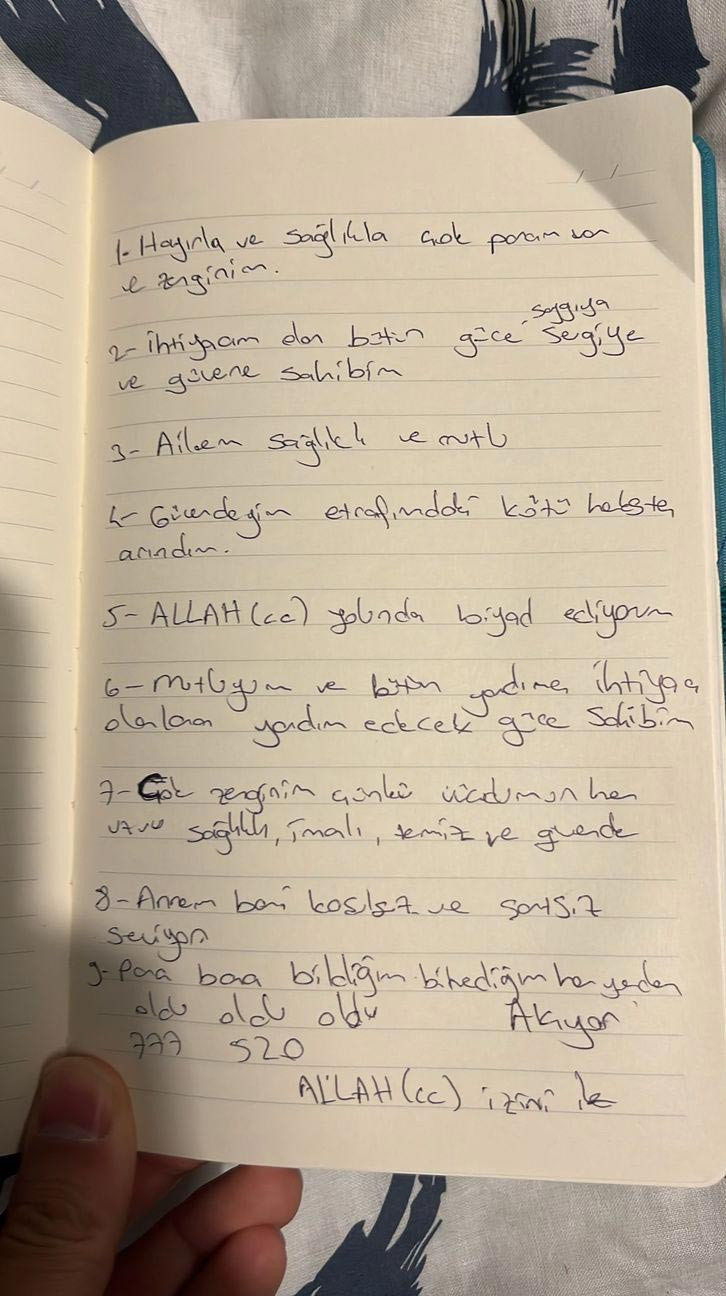 1- Hayırla ve sağlıkla çok param var
ve zenginim.
2- ihtiyacım olan bütün güce saygıya sevgiye
ve güvene sahibim
3- Ailem sağlıklı ve mutlu
4- Güvendeyim etrafımdaki kötü herkesten
arındım.
5- ALLAH (cc) yolunda ediyorum
6- mutluyum ve bütün yardıma ihtiyacı
olanlara yardım edecek güce sahibim
7- Çok zenginim çünkü vücudumun her
uzvu sağlıklı, imanlı, temiz ve güvende
8- Annem beni koşulsuz ve şartsız
seviyor
9- Para bana bildiğim bilmediğim her yerden
oldu oldu oldu Akıyor
777 520
ALLAH (cc) izini ile